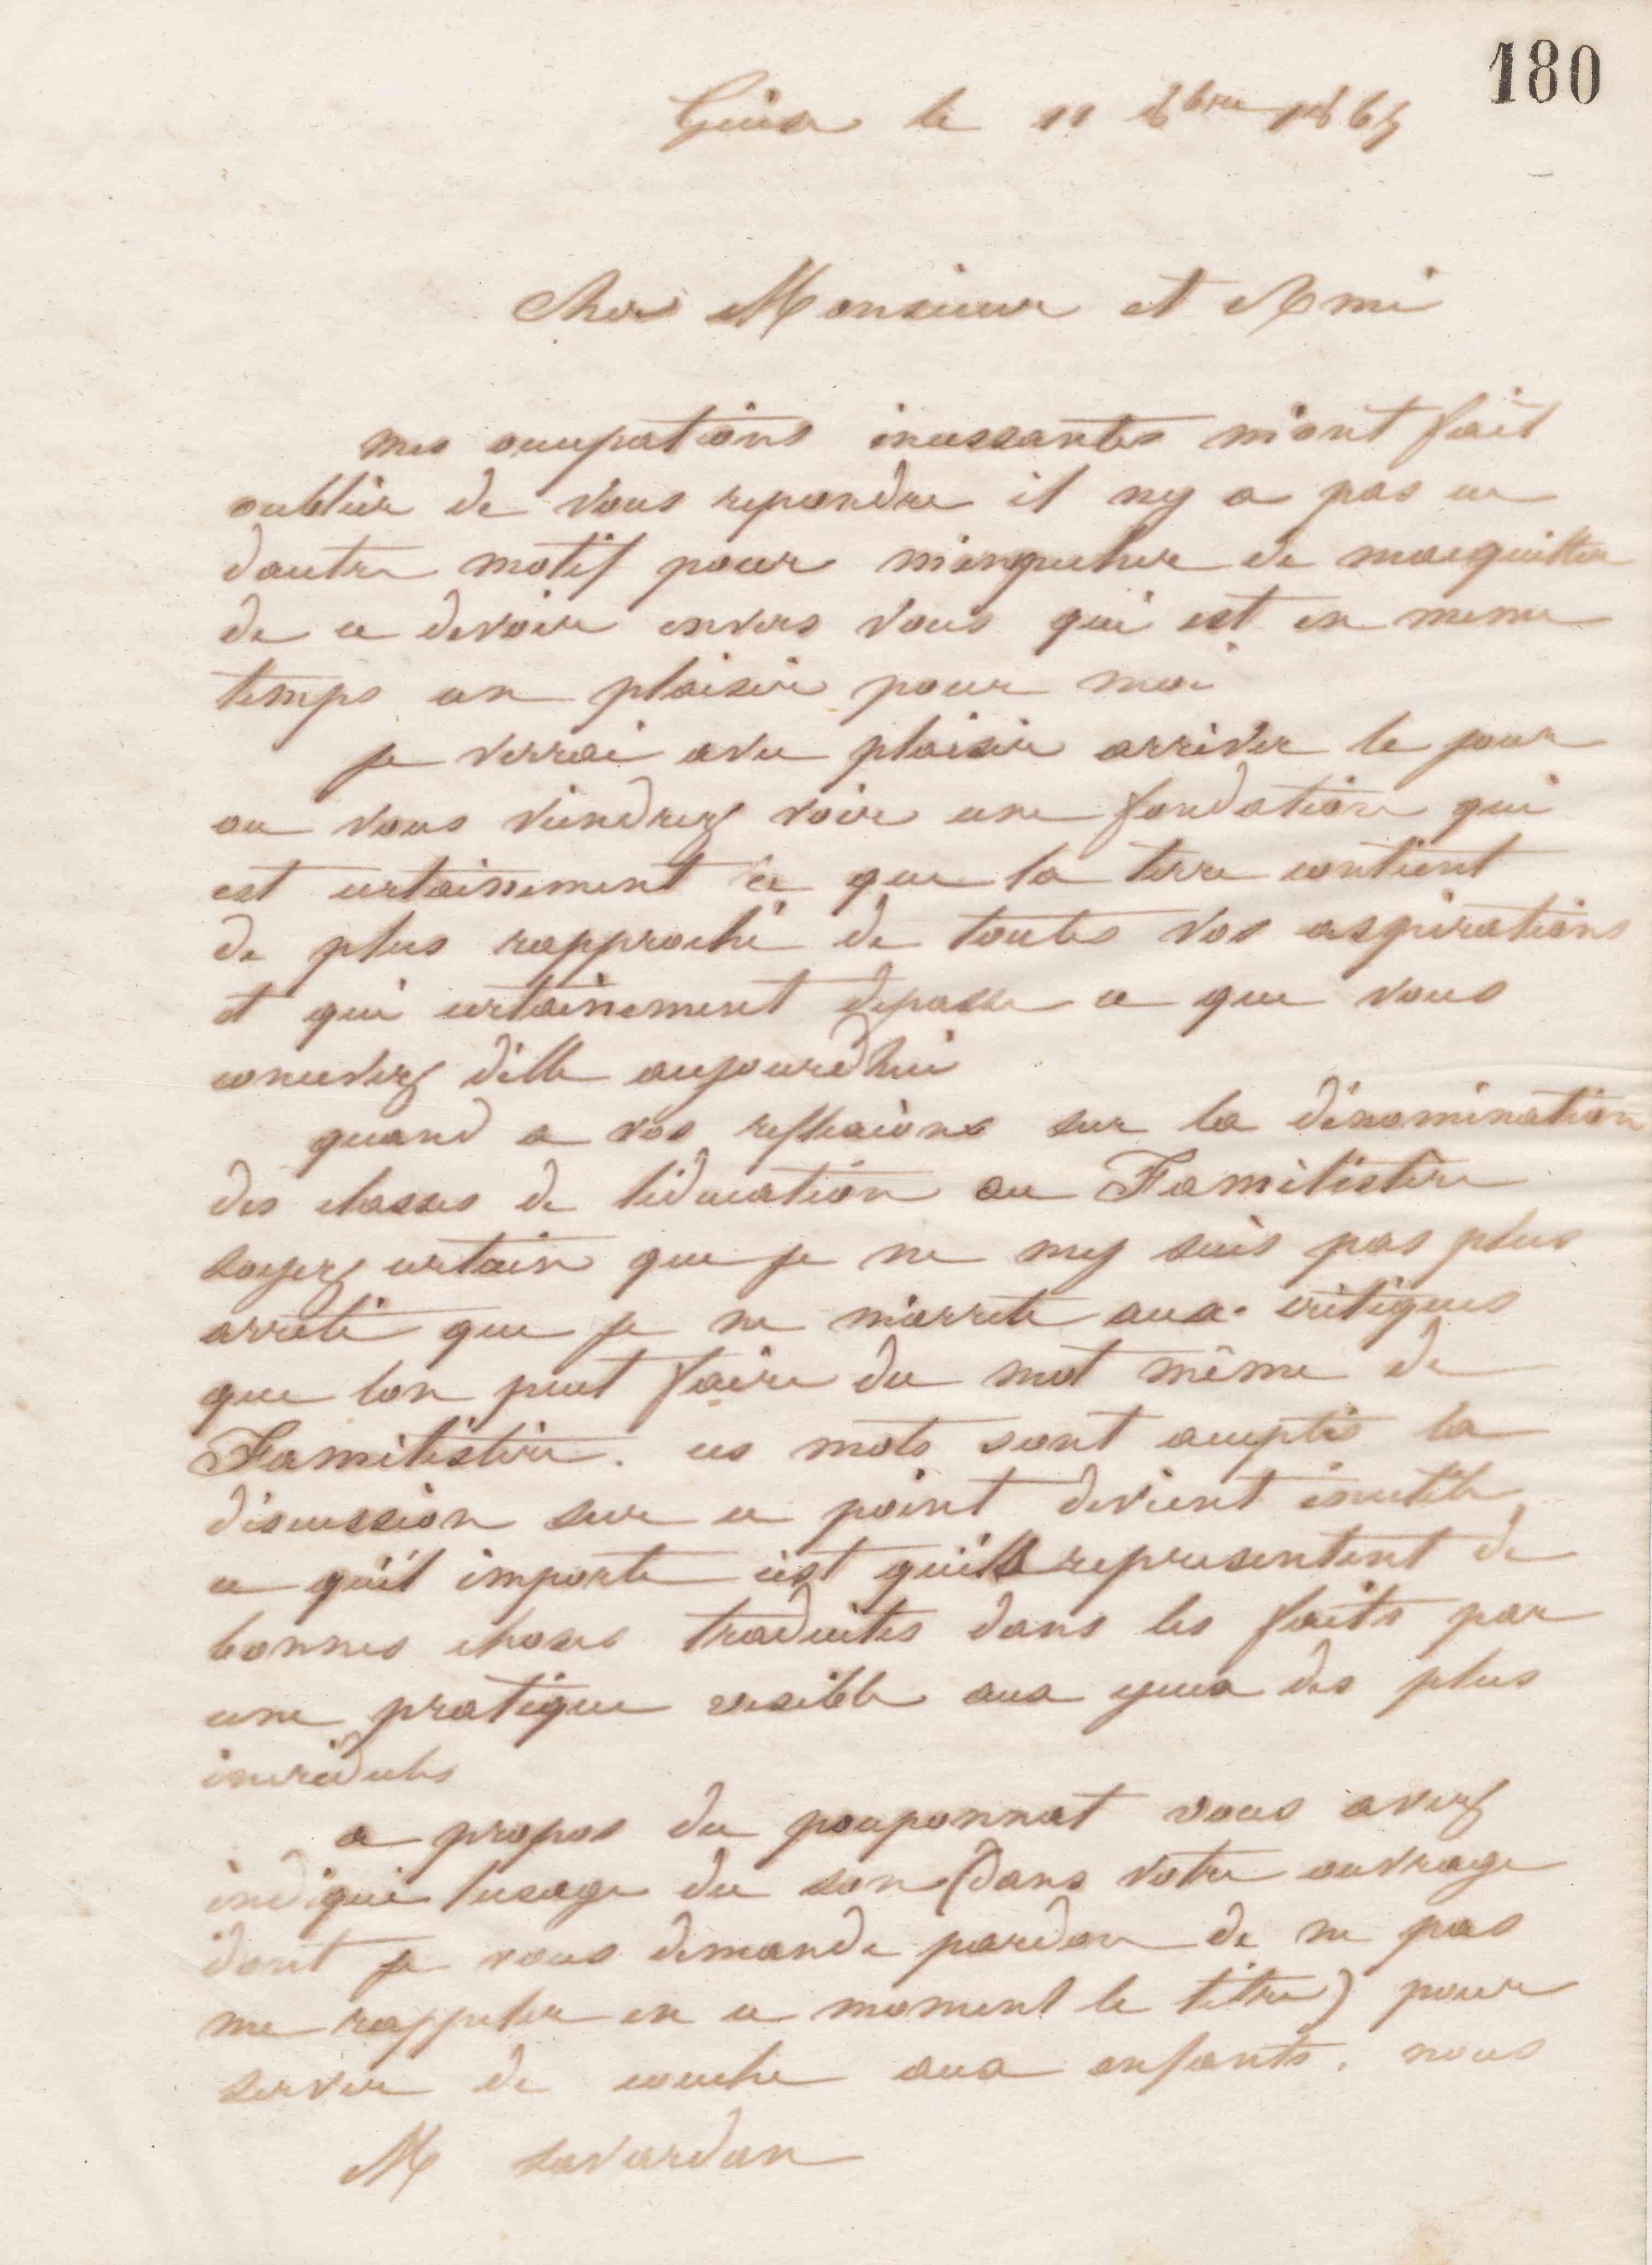 180
Guise le 11 8bre 1865
Cher Monsieur et Ami
mes occupations incessantes m'ont fait
oublier de vous repondre il ny a pas eu
dautre motif pour m'empecher de macquitter
de ce devoir envers vous qui est en meme
temps un plaisir pour moi
je verrai avec plaisir arriver le jour
ou vous viendrez voir une fondation qui
est certainement ce que la terre contient
de plus rapproché de toutes vos aspirations
et qui certainement depasse ce que vous
concevez d'elle aujourd'hui
quand a vos reflexions sur la dénomination
des classes de l'éducation au Familistère
soyez certain que je ne my suis pas plus
arrêté que je ne m'arrete aux critiques
que lon peut faire du mot même de
Familistère. ces mots sont acceptés la
discussion sur ce point devient inutile
ce qu'il importe c'est qu'ils representent de
bonnes choses traduites dans les faits par
une pratique visible aux yeux des plus
incrédules
a propos du pouponnat vous avez
indiqué lusage du son (dans votre ouvrage
dont je vous demande pardon de ne pas
me rappeler en ce moment le titre) pour
servir de couche aux enfants. nous
M Savardan